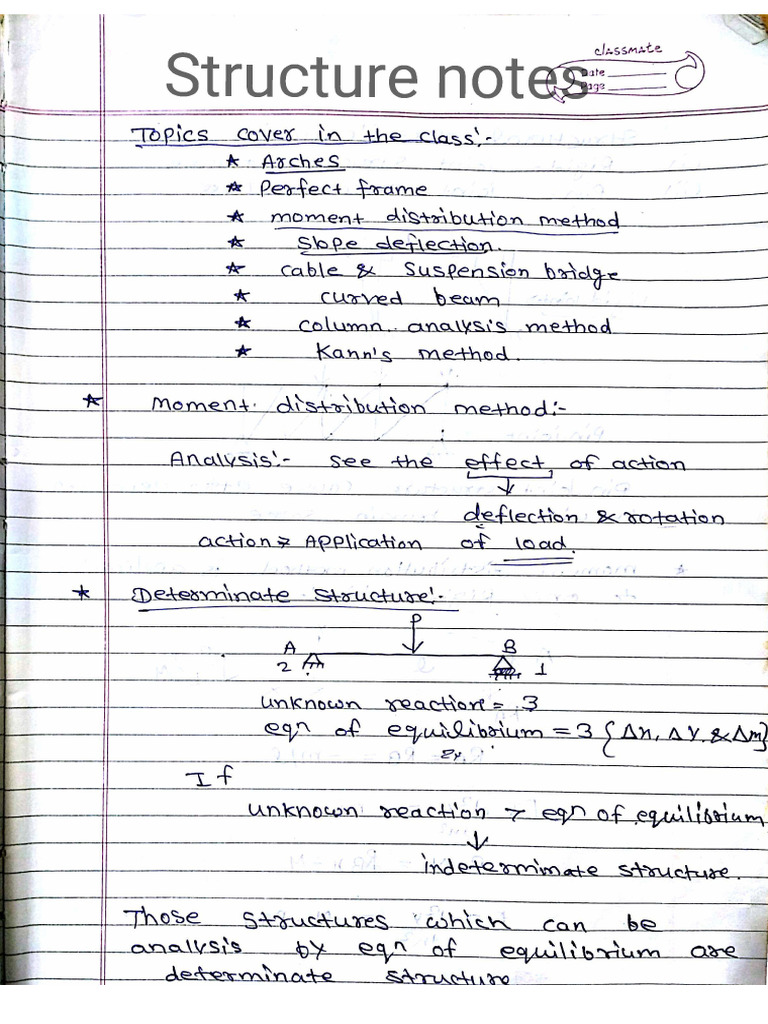 Structure notes
classmate
Date
Page
Topics cover in the class:-
★ Arches
★ Perfect frame
★ moment distribution method
★ Slope deflection.
★ cable & suspension bridge
★ curved beam
★ column analysis method
★ Kann's method.
★ Moment distribution method:-
Analysis:- see the effect of action
↓
deflection & rotation
action → Application of load.
★ Determinate structure:-
P
A B
2 1
unknown reaction = 3
eqn of equilibrium = 3 {Δx, ΔY, & Δm}
If
unknown reaction > eqn of equilibrium
↓
indeterminate structure.
Those structures which can be
analysis by eqn of equilibrium are
determinate structure